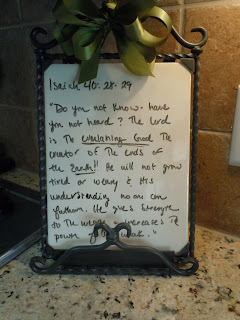 Isaiah 40:28-29
"Do you not know- have
you not heard? The Lord
is The everlasting God The
creator of The ends of
the Earth!! He will not grow
tired or weary & His
understanding no one can
fathom. He gives strength
to The weary increases The
power of weak."